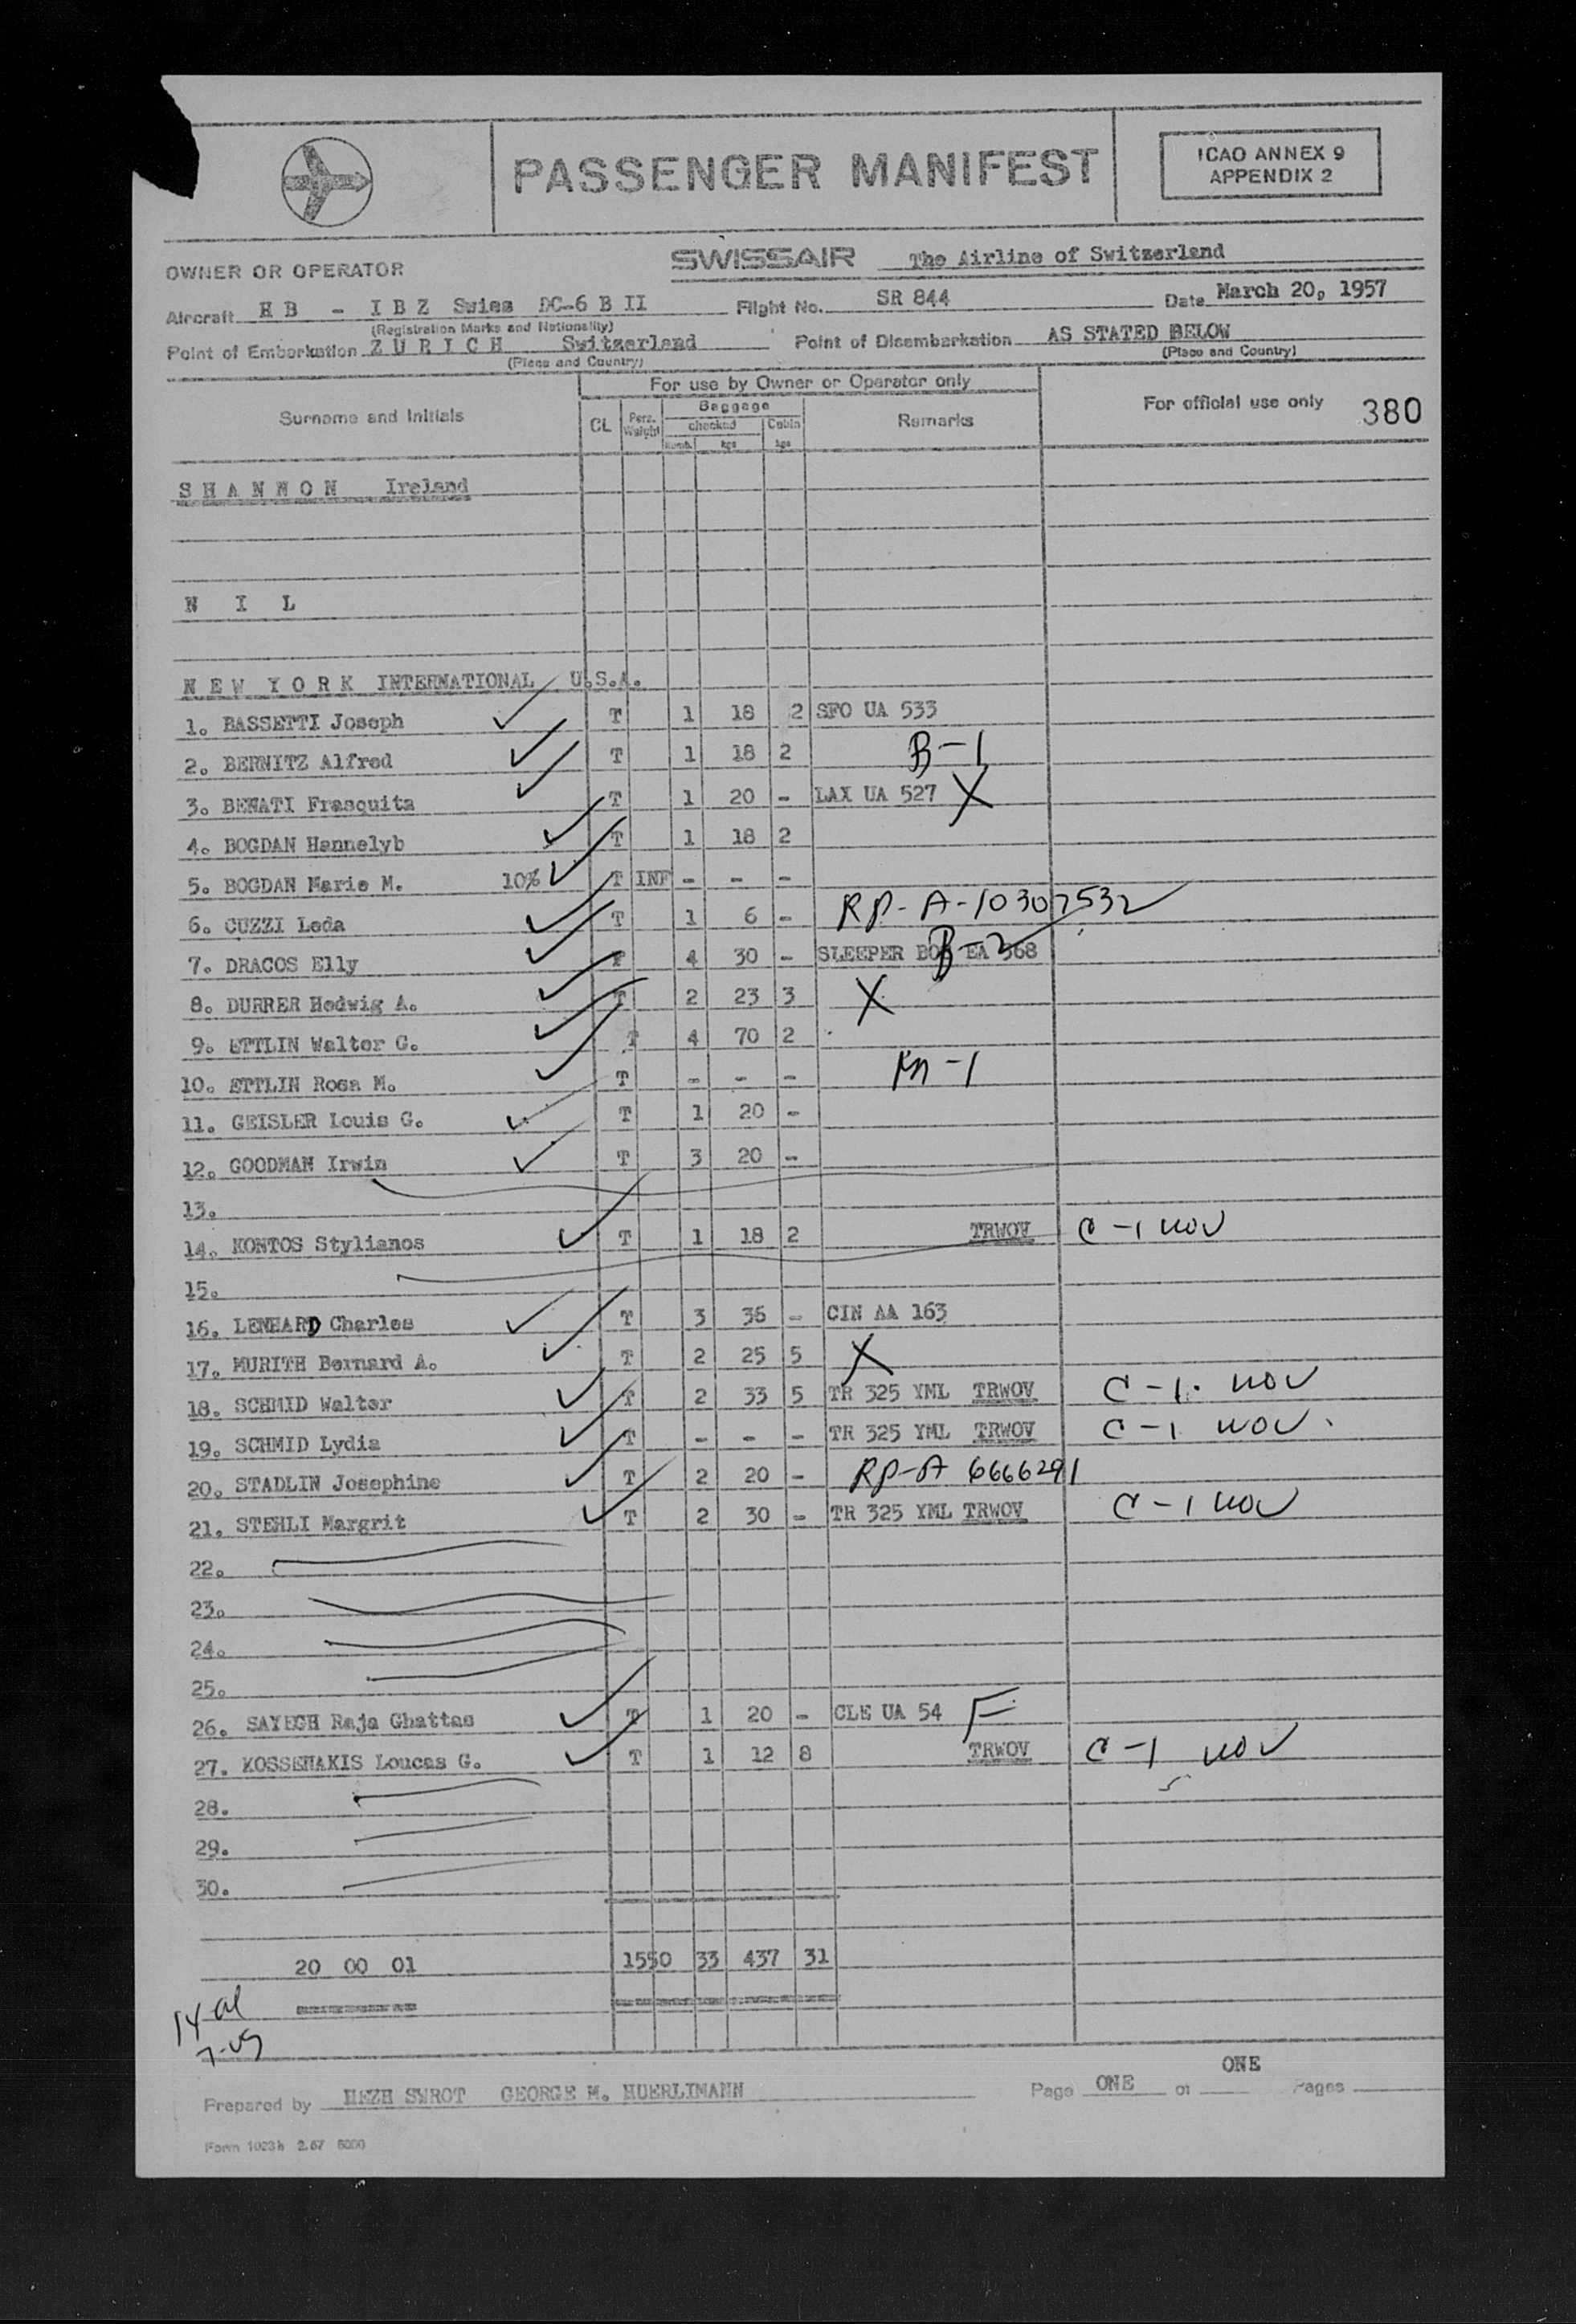 PASSENGER MANIFEST
ICAO ANNEX 9
APPENDIX 2
OWNER OR OPERATOR SWISSAIR The Airline of Switzerland
Aircraft HB - IBZ Swiss DC-6 B II Flight No. SR 844 Date March 20, 1957
(Registration Marks and Nationality)
Point of Embarkation ZURICH Switzerland Point of Disembarkation AS STATED BELOW
(Place and Country) (Place and Country)
For use by Owner or Operator only
Surname and Initials CL Pers. Weight Baggage checked Cabin Remarks For official use only 380
numb. kgs kgs
SHANNON Ireland
NIL
NEW YORK INTERNATIONAL U.S.A.
1. BASSETTI Joseph T 1 18 2 SFO UA 533
2. BERNITZ Alfred T 1 18 2 B-1
3. BENATI Frasquita T 1 20 - LAX UA 527 X
4. BOGDAN Hannelyb T 1 18 2
5. BOGDAN Marie M. 10% T INF - - -
6. CUZZI Leda T 1 6 - RP-A-10307532
7. DRACOS Elly F 4 30 - SLEEPER BOS EA 368 B-2
8. DURRER Hedwig A. T 2 23 3 X
9. ETTLIN Walter G. T 4 70 2
10. ETTLIN Rosa M. T - - - -1
11. GEISLER Louis G. T 1 20 -
12. GOODMAN Irwin T 3 20 -
13.
14. KONTOS Stylianos T 1 18 2 TRWOV C-1 NOV
15.
16. LENHARD Charles T 3 36 - CIN AA 163
17. MURITH Bernard A. T 2 25 5 X
18. SCHMID Walter T 2 33 5 TR 325 YML TRWOV C-1. NOV
19. SCHMID Lydia T - - - TR 325 YML TRWOV C-1 NOV.
20. STADLIN Josephine T 2 20 - RP-A 6666291
21. STEHLI Margrit T 2 30 - TR 325 YML TRWOV C-1 NOV
22.
23.
24.
25.
26. SAYEGH Raja Ghattas T 1 20 - CLE UA 54 F
27. KOSSENAKIS Loucas G. T 1 12 8 TRWOV C-1 NOV
28.
29.
30.
20 00 01 1550 33 437 31
14 al
7-us
ONE
Prepared by HEZH SWROT GEORGE M. HUERLIMANN Page ONE of Pages
Form 1023h 2.57 5000